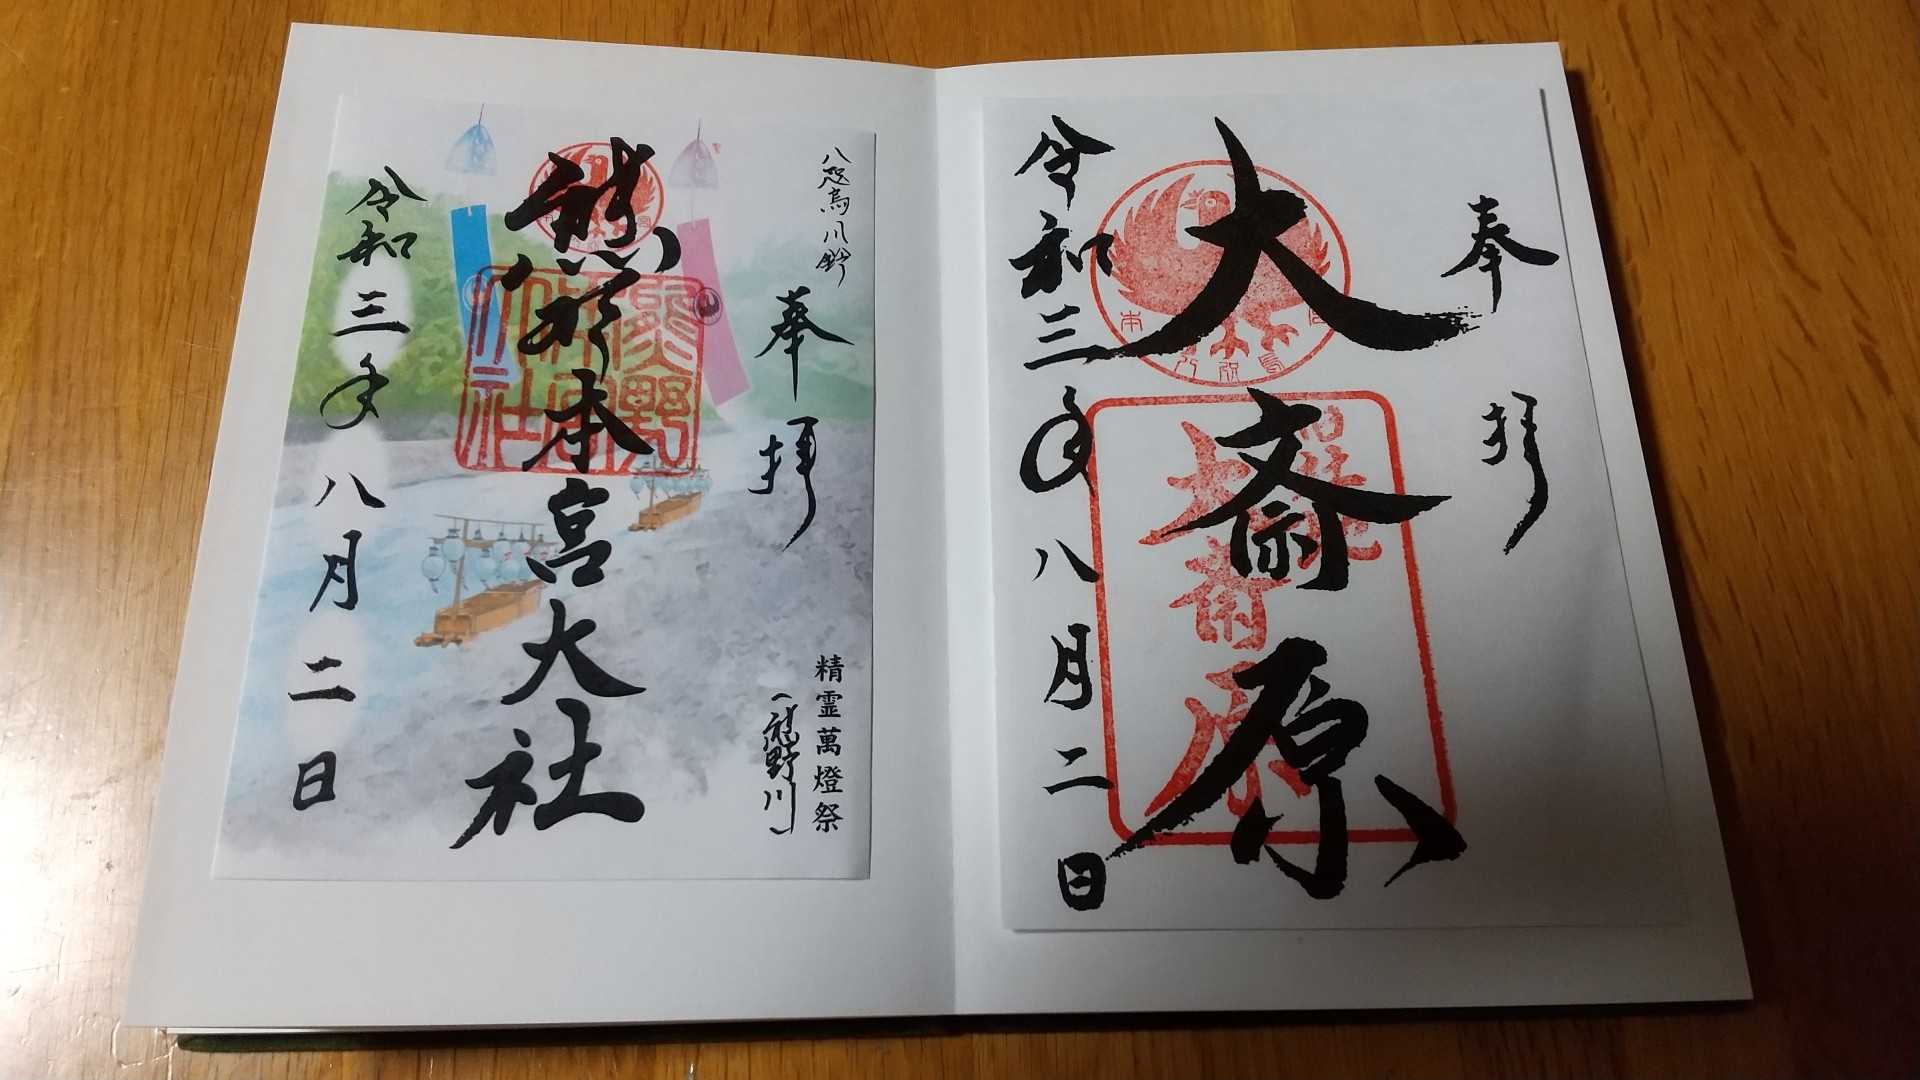 奉拝
大斎原
令和三年八月二日
奉拝
熊野本宮大社
令和三年八月二日
精霊萬燈祭
（熊野川）
熊野
本宮
大社
大斎原